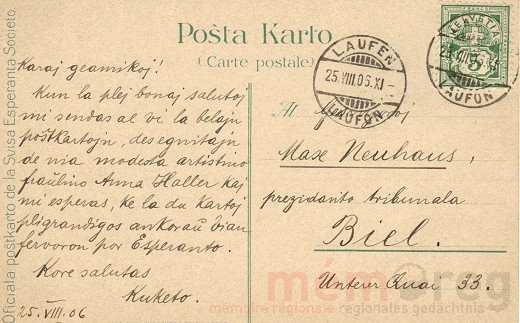 Poŝta Karto
(Carte postale)
Oficiala postkarto de la Svisa Esperanta Societo.
Karaj geamikoj!
Kun la plej bonaj salutoj
mi sendas al vi la belajn
poŝtkartojn, desegnitajn
de nia modesta artistino
fraŭlino Anna Haller kaj
mi esperas, ke la du kartoj
pligrandigos ankoraŭ vian
fervoron por Esperanto.
Kore salutas
Kuketo.
25. VIII. 06
HELVETIA
FRANCO
5
LAUFEN
25.VIII.06.XI
LAUFON
LAUFON
Max Neuhaus,
prezidanto tribunala
Biel.
Unterer Quai 33.
mémoreg
mémoire régionale regionales gedächtnis